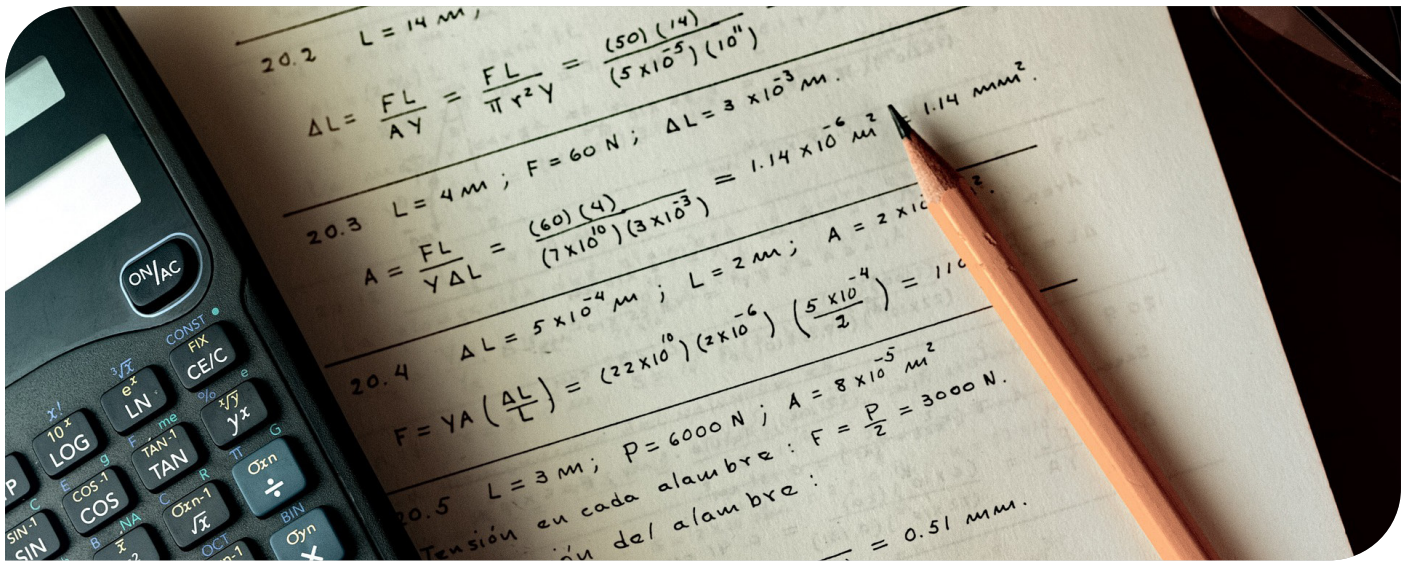 20.2 L = 14 m ;
ΔL = FL/AY = FL/πr²Y = (50)(14)/(5x10⁻⁵)(10¹¹)
20.3 L = 4 m ; F = 60 N ; ΔL = 3 x10⁻³ m.
A = FL/YΔL = (60)(4)/(7x10¹⁰)(3x10⁻³) = 1.14 x10⁻⁶ m² = 1.14 mm².
20.4 ΔL = 5 x10⁻⁴ m ; L = 2 m ; A = 2 x10 m².
F = YA (ΔL/L) = (22x10¹⁰)(2x10⁻⁶) (5 x10⁻⁴/2) = 110
20.5 L = 3 m ; P = 6000 N ; A = 8 x10⁻⁵ m²
Tensión en cada alambre : F = P/2 = 3000 N.
del alambre :
= 0.51 mm.
ON/AC
CONST
FIX
CE/C
³√x
eˣ
LN
% e
ˣ√y
yx
x!
10ˣ
LOG
F me
TAN-1
TAN
π G
σxn
÷
P
E g
COS-1
COS
C R
σxn-1
√x
BIN
σyn
×
C
SIN-1
SIN
B NA
x̄
OCT
n-1